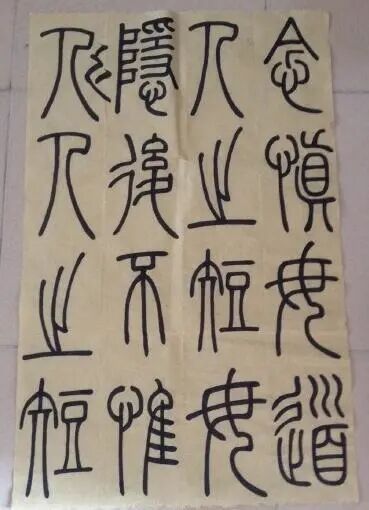 念慎毋道
人之短毋
隱後不惟
人之短